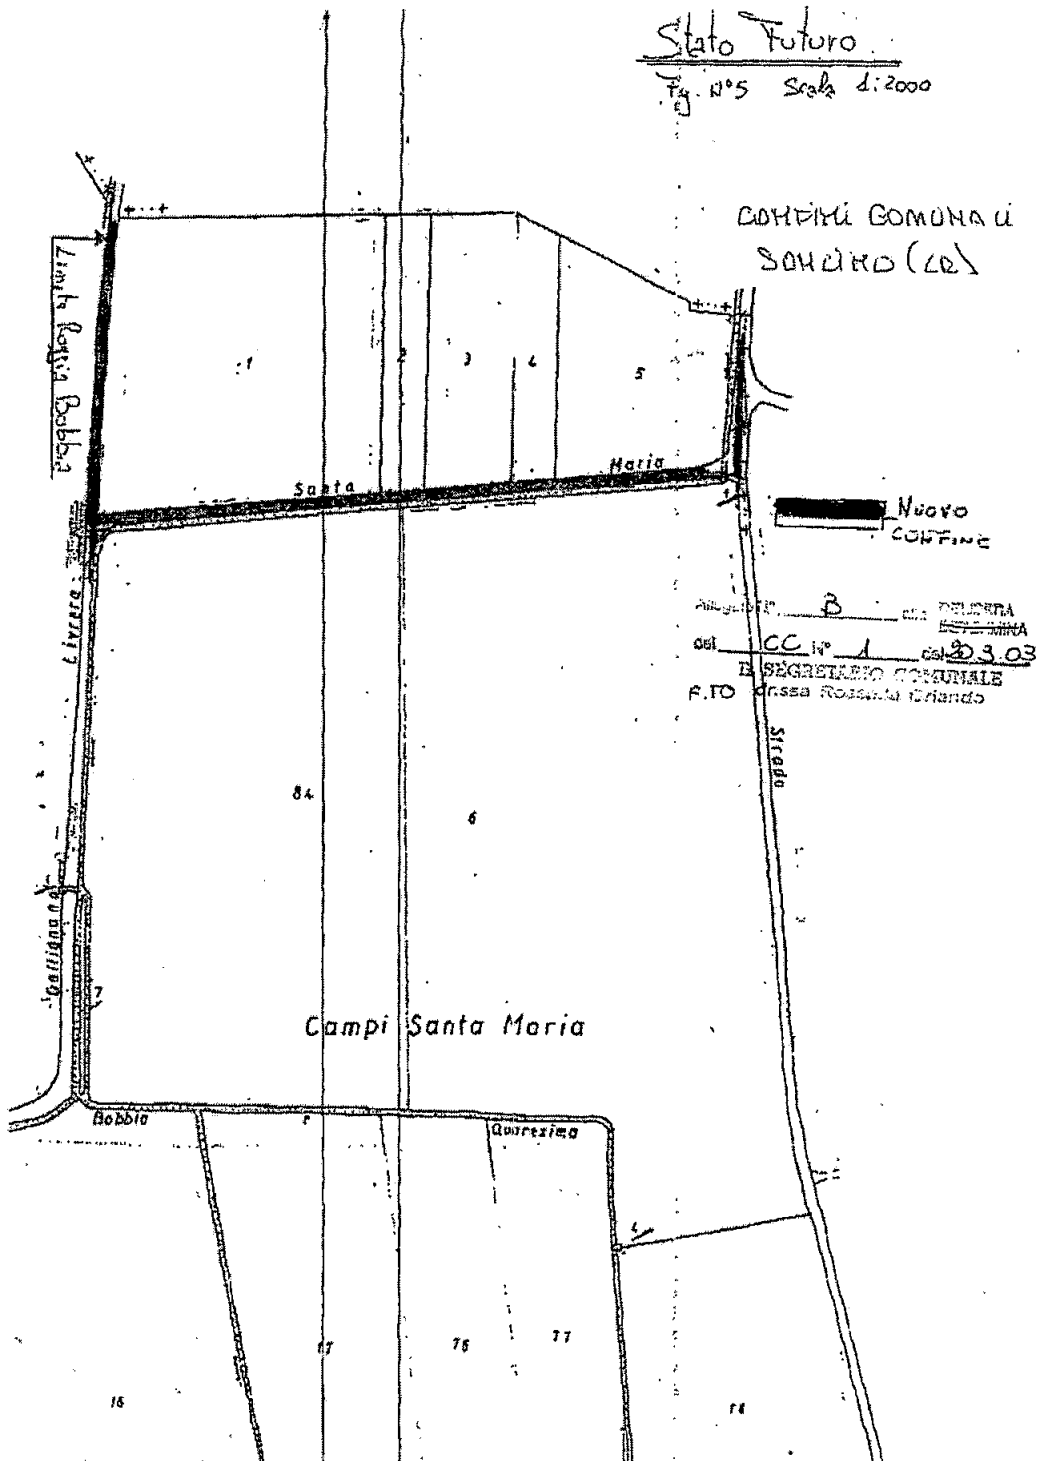 Stato Futuro
Fg. N°5 Scala 1:2000
CONFINI COMUNALI
SONCINO (CR)
Limite Roggia Bobbia
1
2
3
4
5
Santa Maria
1
Nuovo
CONFINE
Livrera
B DELIBERA
del CC N° 1 del 20.3.03
IL SEGRETARIO COMUNALE
F.TO Orlando
Strada
84
6
Gallignano
7
Campi Santa Maria
Bobbio
Quaresima
4
17
76
77
16